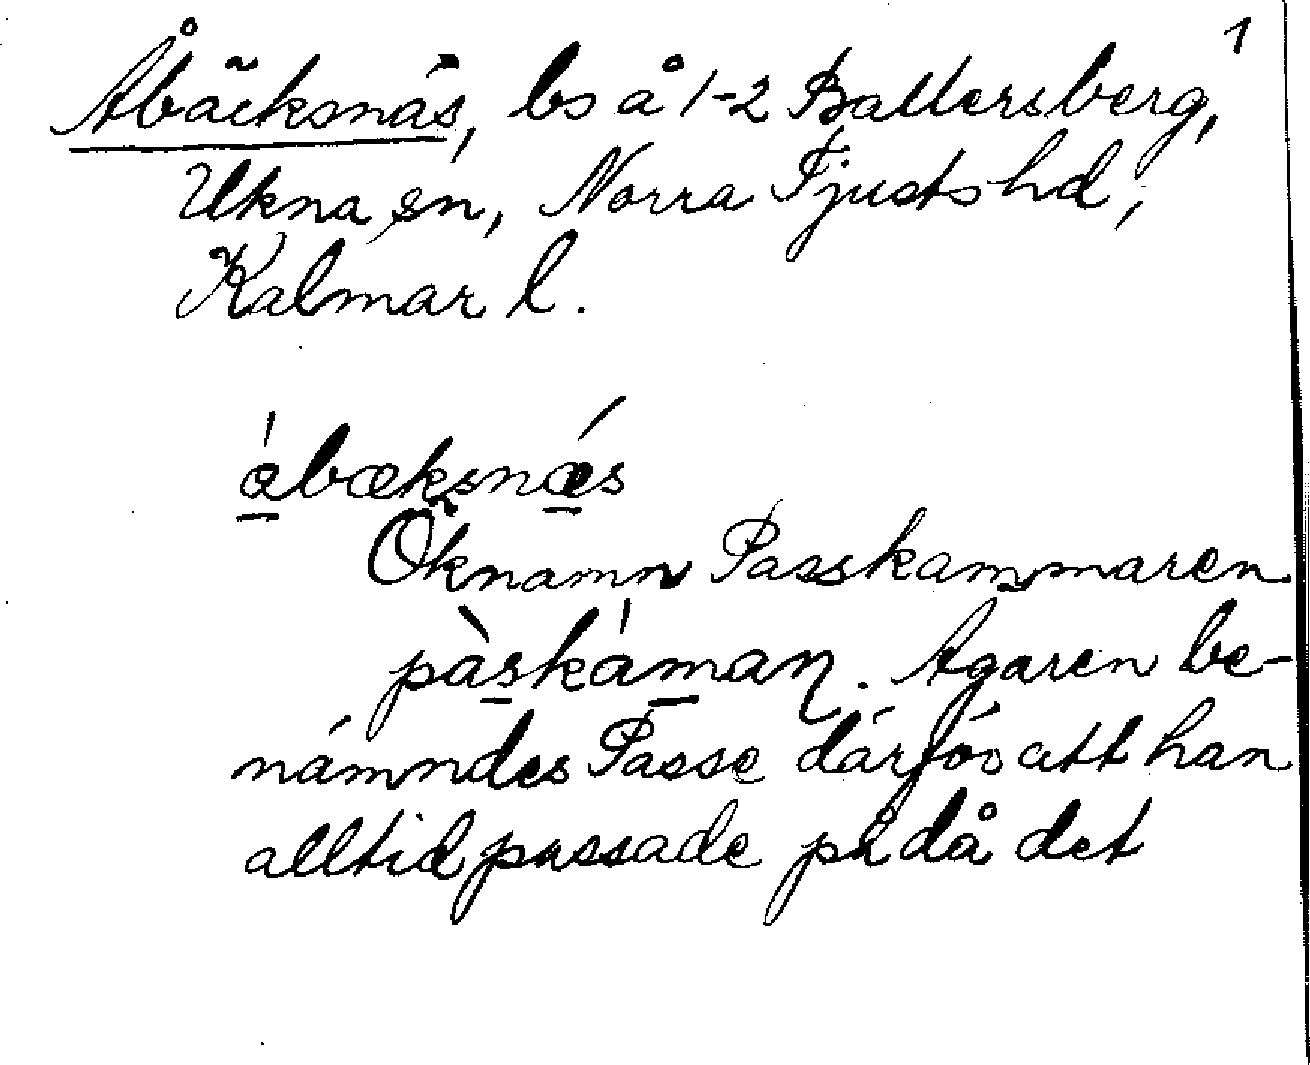 1
Åbäcksnäs, bs å 1-2 Ballersberg,
Ukna sn, Norra Tjusts hd,
Kalmar l.
ábæksnǽs
Öknamn Passkammaren
pàskáman. Ägaren be-
nämndes Passe därför att han
alltid passade på då det